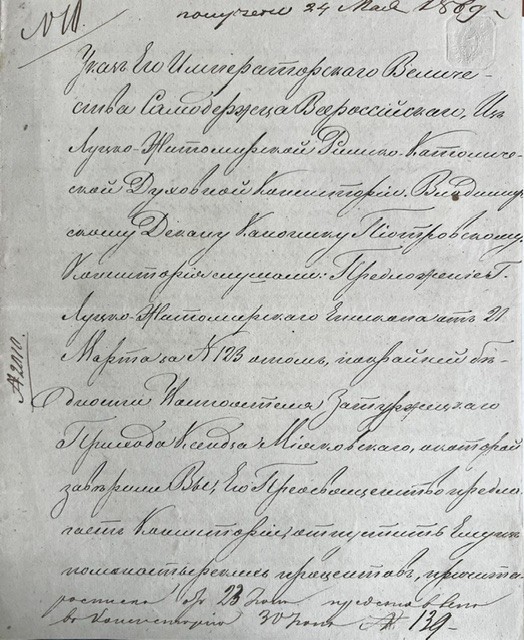 № 10
получено 24 Мая 1869
Указъ Его Императорскаго Величе-
ства Самодержца Всероссійскаго, Изъ
Луцко-Житомирской Римско-Католиче-
ской Духовной Консисторіи, Владимір-
скому Декану Канонику Піотровскому.
Консисторія слушали: Предложеніе Г.
Луцко-Житомирскаго Епископа отъ 21
Марта за № 123 о томъ, по крайней бѣ-
№ 2010.
дности Настоятеля Затурцецкаго
Прихода Ксендза Міяковскаго, о которой
завѣрили Вы, Его Преосвященство предла-
гаетъ Консисторіи отпустить Ему въ
помощь процентовъ,
росписка 23 Іюня представлена
въ Консисторію 30 Іюня № 139